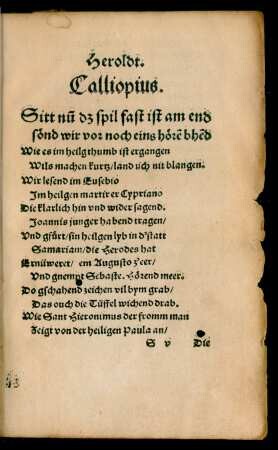 Heroldt.
Calliopius.
Sitt nũ dz spil fast ist am end
sõnd wir vor noch eins hõrẽ bhẽd
Wie es im heilgthumb ist ergangen
Wils machen kurtz/land üch nit blangen.
Wir lesend im Eusebio
Im heilgen martirer Cypriano
Die klarlich hin vnd wider sagend.
Joannis junger habend tragen/
Vnd gfürt/sin heilgen lyb in d'statt
Samariam/die Herodes hat
Ernüweret/ em Augusto z'eer/
Vnd gnempt Sebaste. Hörend meer.
Do gschahend zeichen vil bym grab/
Das ouch die Tüffel wichend drab.
Wie Sant Hieronimus der fromm man
Zeigt von der heiligen Paula an/
S v Die